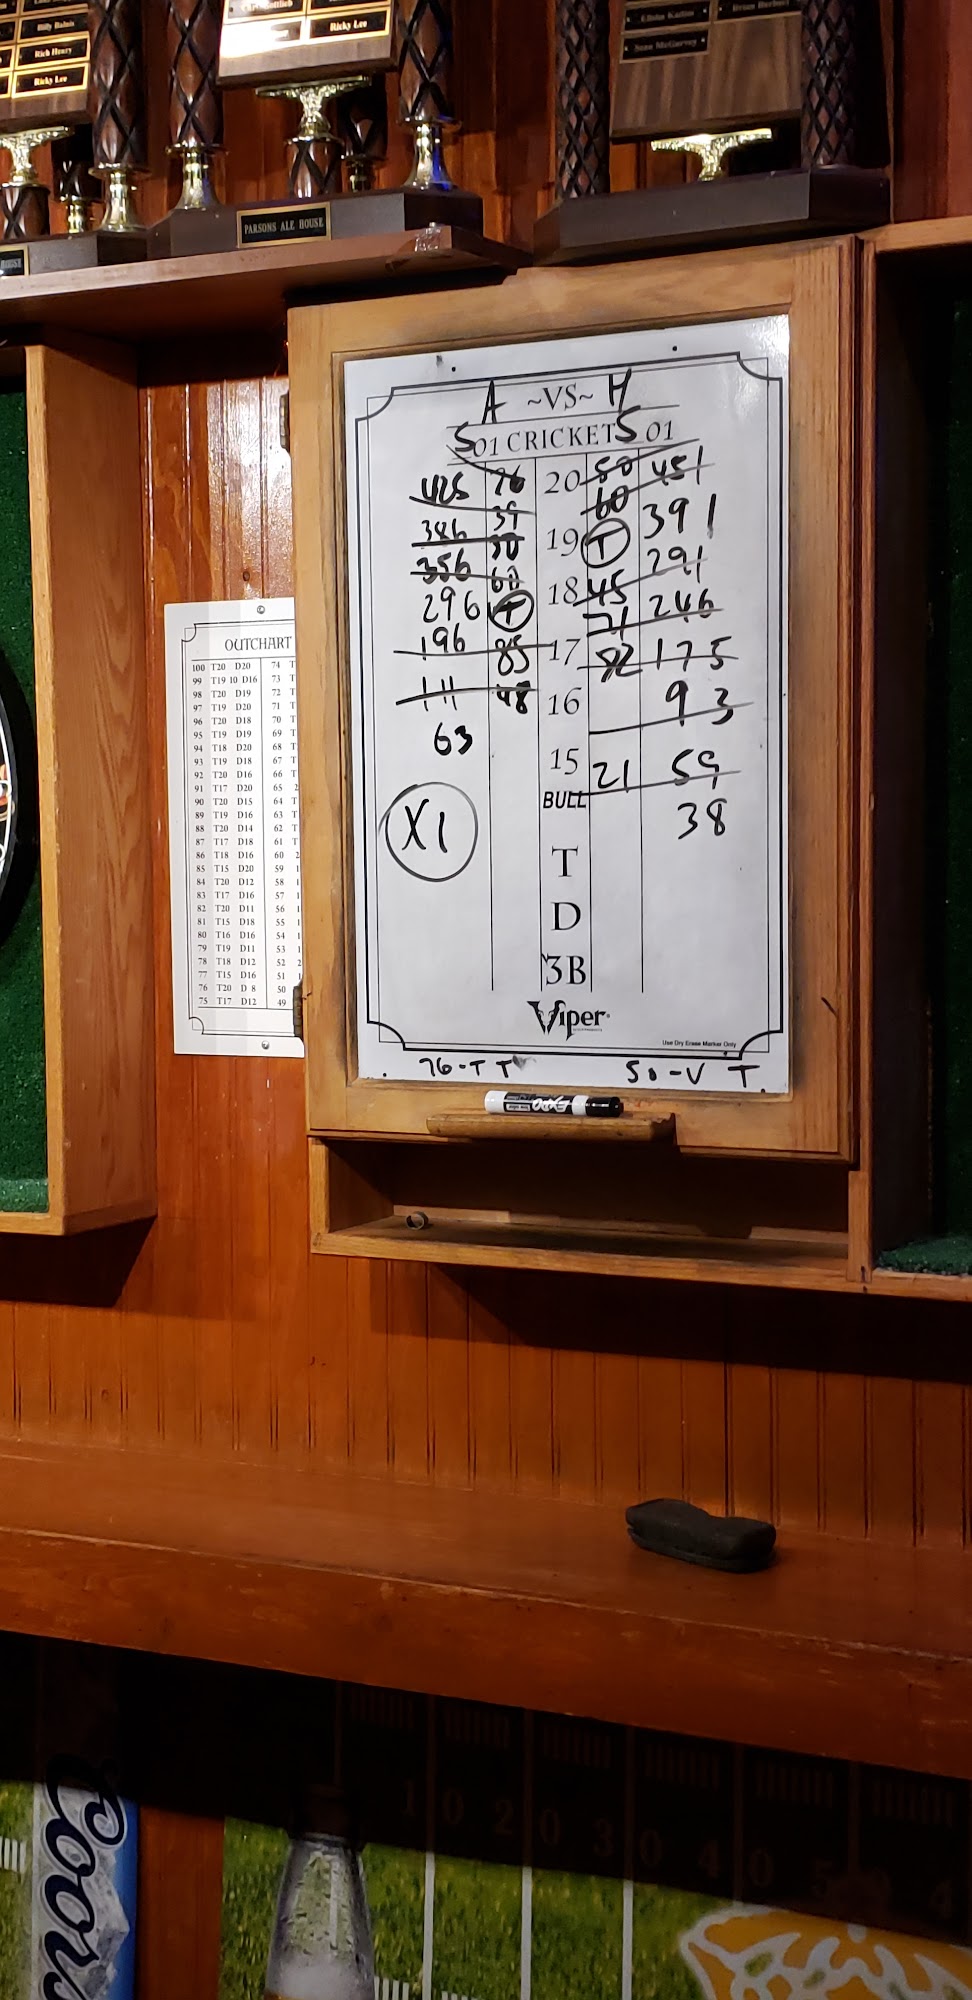 Billy Balnis
Rich Henry
Ricky Lee
Ricky Lee
Sean McGarvey
PARSONS ALE HOUSE
HOUSE
A ~VS~ H
501 CRICKET 501
425 76 20 80 451
386 39 60 391
356 30 19 T 291
296 60 18 45 246
196 T 71 175
111 85 17 82 93
63 48 16
15 21 59
BULL 38
X1
T
D
3B
Viper
Use Dry Erase Marker Only
76-T T 50-V T
EXPO
OUTCHART
100 T20 D20 74 T
99 T19 10 D16 73 T
98 T20 D19 72 T
97 T19 D20 71 T
96 T20 D18 70 T
95 T19 D19 69 T
94 T18 D20 68 T
93 T19 D18 67 T
92 T20 D16 66 T
91 T17 D20 65 2
90 T20 D15 64 T
89 T19 D16 63 T
88 T20 D14 62 T
87 T17 D18 61 T
86 T18 D16 60 2
85 T15 D20 59 1
84 T20 D12 58 1
83 T17 D16 57 1
82 T20 D11 56 1
81 T15 D18 55 1
80 T16 D16 54 1
79 T19 D11 53 1
78 T18 D12 52 2
77 T15 D16 51 1
76 T20 D 8 50
75 T17 D12 49
Coors
1 0 2 0 3 0 4 0 5 4